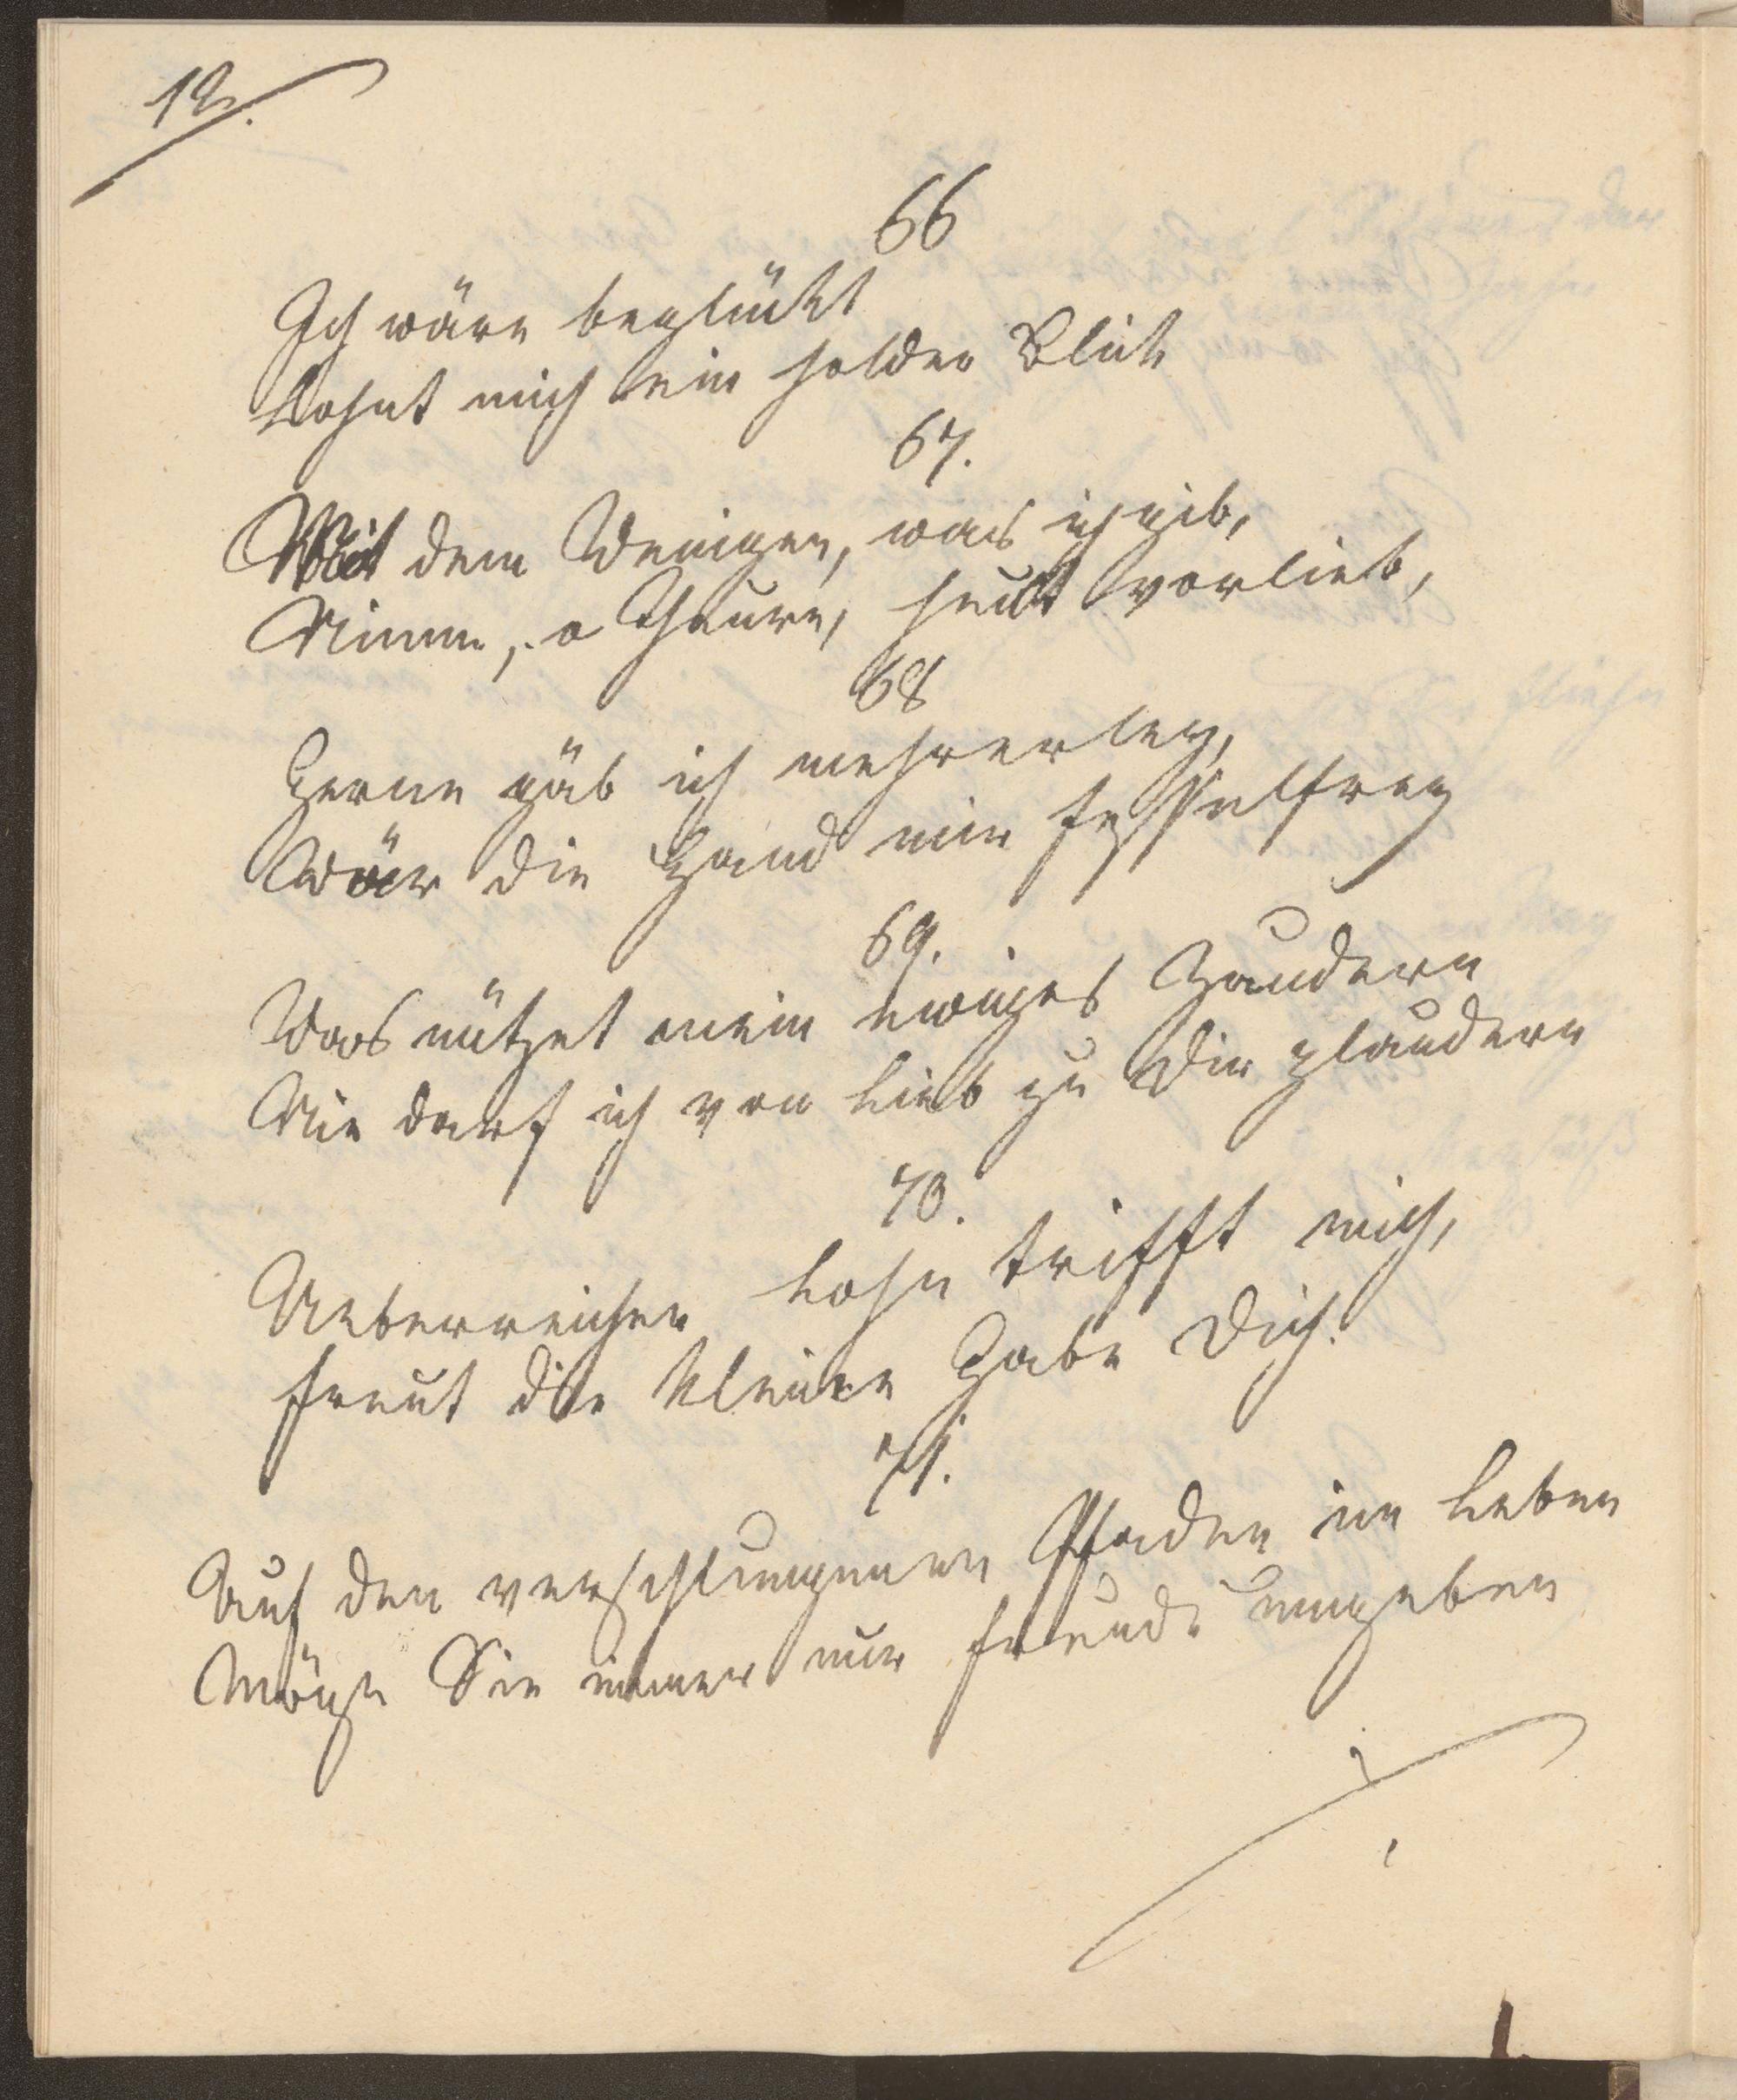 12.
66
Ich wäre beglückt
Lohnt mich ein holder Blick
67.
Mit dem Wenigen, was ich gib,
Nimm, o Theure, heut vorlieb,
68
Gerne gäb ich mehrerley,
Wär die Hand mir fesselfrey
69.
Was nützet mein ewiges Zaudern
Nie darf ich von Lieb zu Dir plaudern
70.
Ueberreicher Lohn trifft mich,
Freut die kleine Gabe Dich.
71.
Auf den verschlungenen Pfaden im Leben
Möge Sie immer nur Freude umgeben